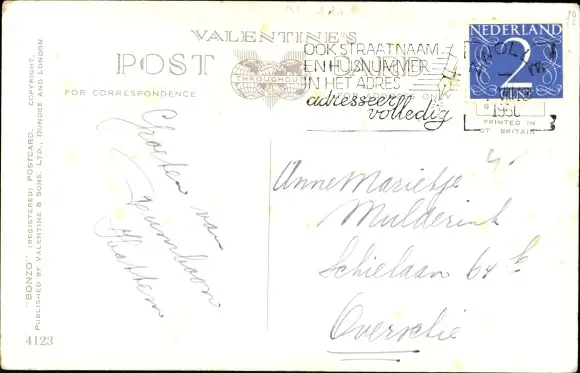 VALENTINE'S
POST CARD
THROUGHOUT
FOR CORRESPONDENCE
OOK STRAATNAAM
EN HUISNUMMER
IN HET ADRES
adresseer
volledig
NEDERLAND
2
1950
PRINTED IN
GT BRITAIN
Groeten van
Hattem
AnneMarietje
Mulderink
Schielaan 64
Overschie
"BONZO" (REGISTERED) POSTCARD. COPYRIGHT.
PUBLISHED BY VALENTINE & SONS, LTD., DUNDEE AND LONDON.
4123